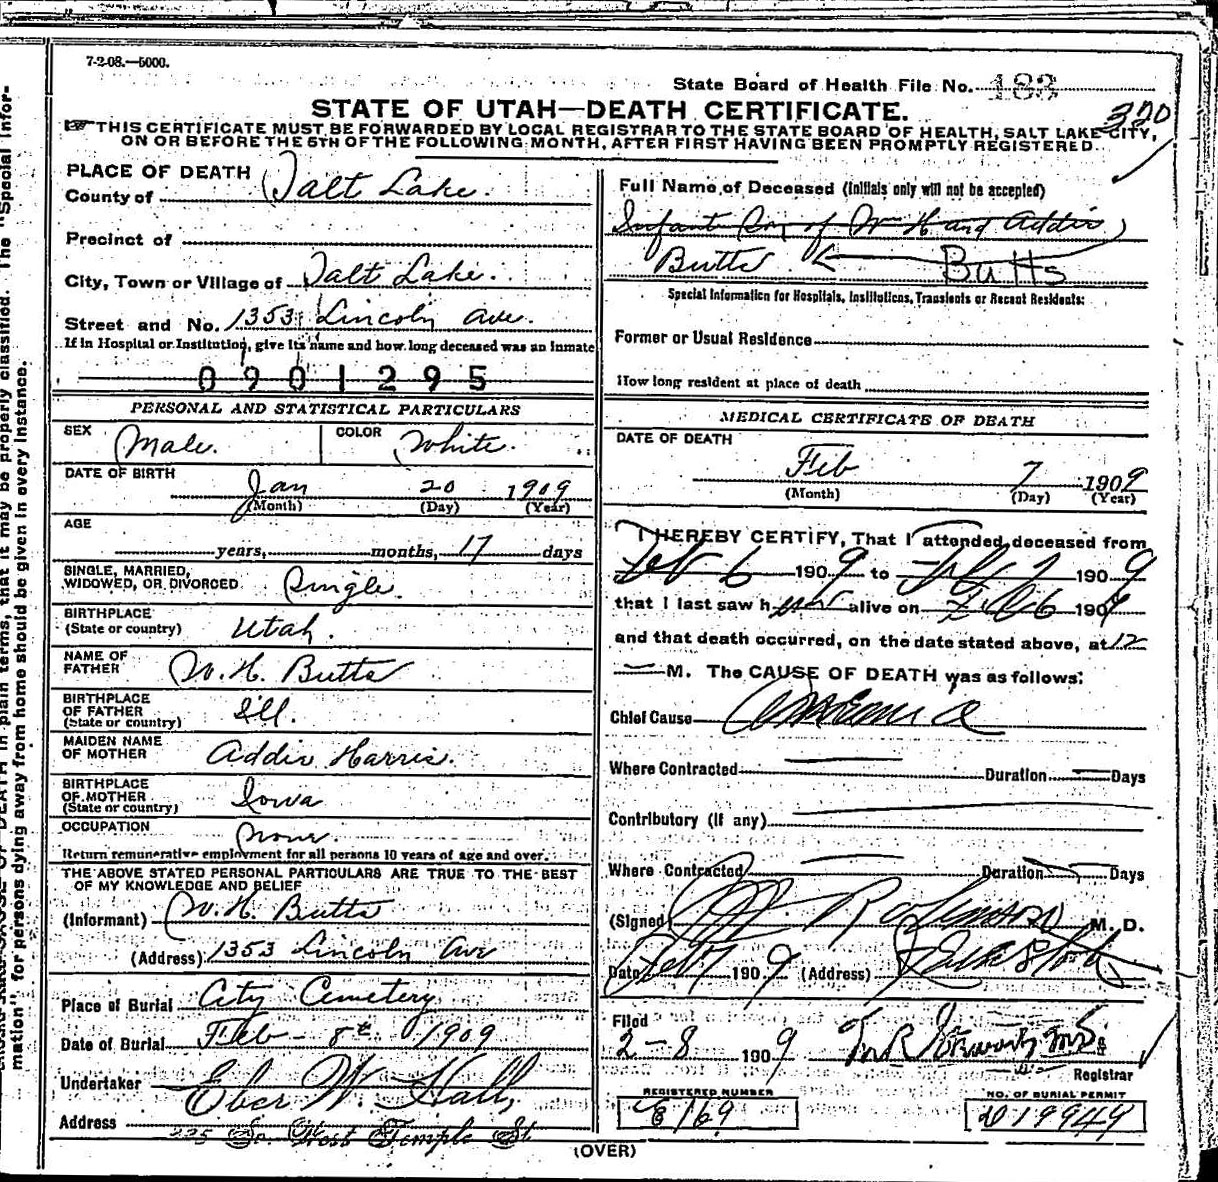 7-2-08.—5000.
State Board of Health File No. 183
STATE OF UTAH—DEATH CERTIFICATE.
320
THIS CERTIFICATE MUST BE FORWARDED BY LOCAL REGISTRAR TO THE STATE BOARD OF HEALTH, SALT LAKE CITY,
ON OR BEFORE THE 5TH OF THE FOLLOWING MONTH, AFTER FIRST HAVING BEEN PROMPTLY REGISTERED.
PLACE OF DEATH
County of Salt Lake.
Precinct of
City, Town or Village of Salt Lake.
Street and No. 1353 Lincoln Ave.
If in Hospital or Institution, give its name and how long deceased was an inmate
0901295
PERSONAL AND STATISTICAL PARTICULARS
SEX Male. COLOR White.
DATE OF BIRTH
Jan 20 1909
(Month) (Day) (Year)
AGE
years, months, 17 days
SINGLE, MARRIED,
WIDOWED, OR DIVORCED Single.
BIRTHPLACE
(State or country) Utah.
NAME OF
FATHER W. H. Butts
BIRTHPLACE
OF FATHER
(State or country) Ill.
MAIDEN NAME
OF MOTHER Addie Harris.
BIRTHPLACE
OF MOTHER
(State or country) Iowa
OCCUPATION None
Return remunerative employment for all persons 10 years of age and over.
THE ABOVE STATED PERSONAL PARTICULARS ARE TRUE TO THE BEST
OF MY KNOWLEDGE AND BELIEF
(Informant) W. H. Butts
(Address) 1353 Lincoln Ave
Place of Burial City Cemetery
Date of Burial Feb - 8th 1909
Undertaker Eber W. Hall,
Address 225 So. West Temple St
Full Name of Deceased (Initials only will not be accepted)
Infant Boy of Wm H and Addie
Butts Butts
Special Information for Hospitals, Institutions, Transients or Recent Residents:
Former or Usual Residence
How long resident at place of death
MEDICAL CERTIFICATE OF DEATH
DATE OF DEATH
Feb 7 1909
(Month) (Day) (Year)
I HEREBY CERTIFY, That I attended deceased from
Feb 6 1909 to Feb 7 1909
that I last saw h alive on Feb 6 1909
and that death occurred, on the date stated above, at 12
M. The CAUSE OF DEATH was as follows:
Chief Cause
Where Contracted Duration Days
Contributory (if any)
Where Contracted Duration Days
(Signed) Robinson M. D.
Date Feb 7 1909 (Address)
Filed
2-8 1909
Registrar
REGISTERED NUMBER
E169
NO. OF BURIAL PERMIT
D19949
(OVER)
DEATH in plain terms, that it may be properly classified. The "Special Infor-
mation" for persons dying away from home should be given in every instance.